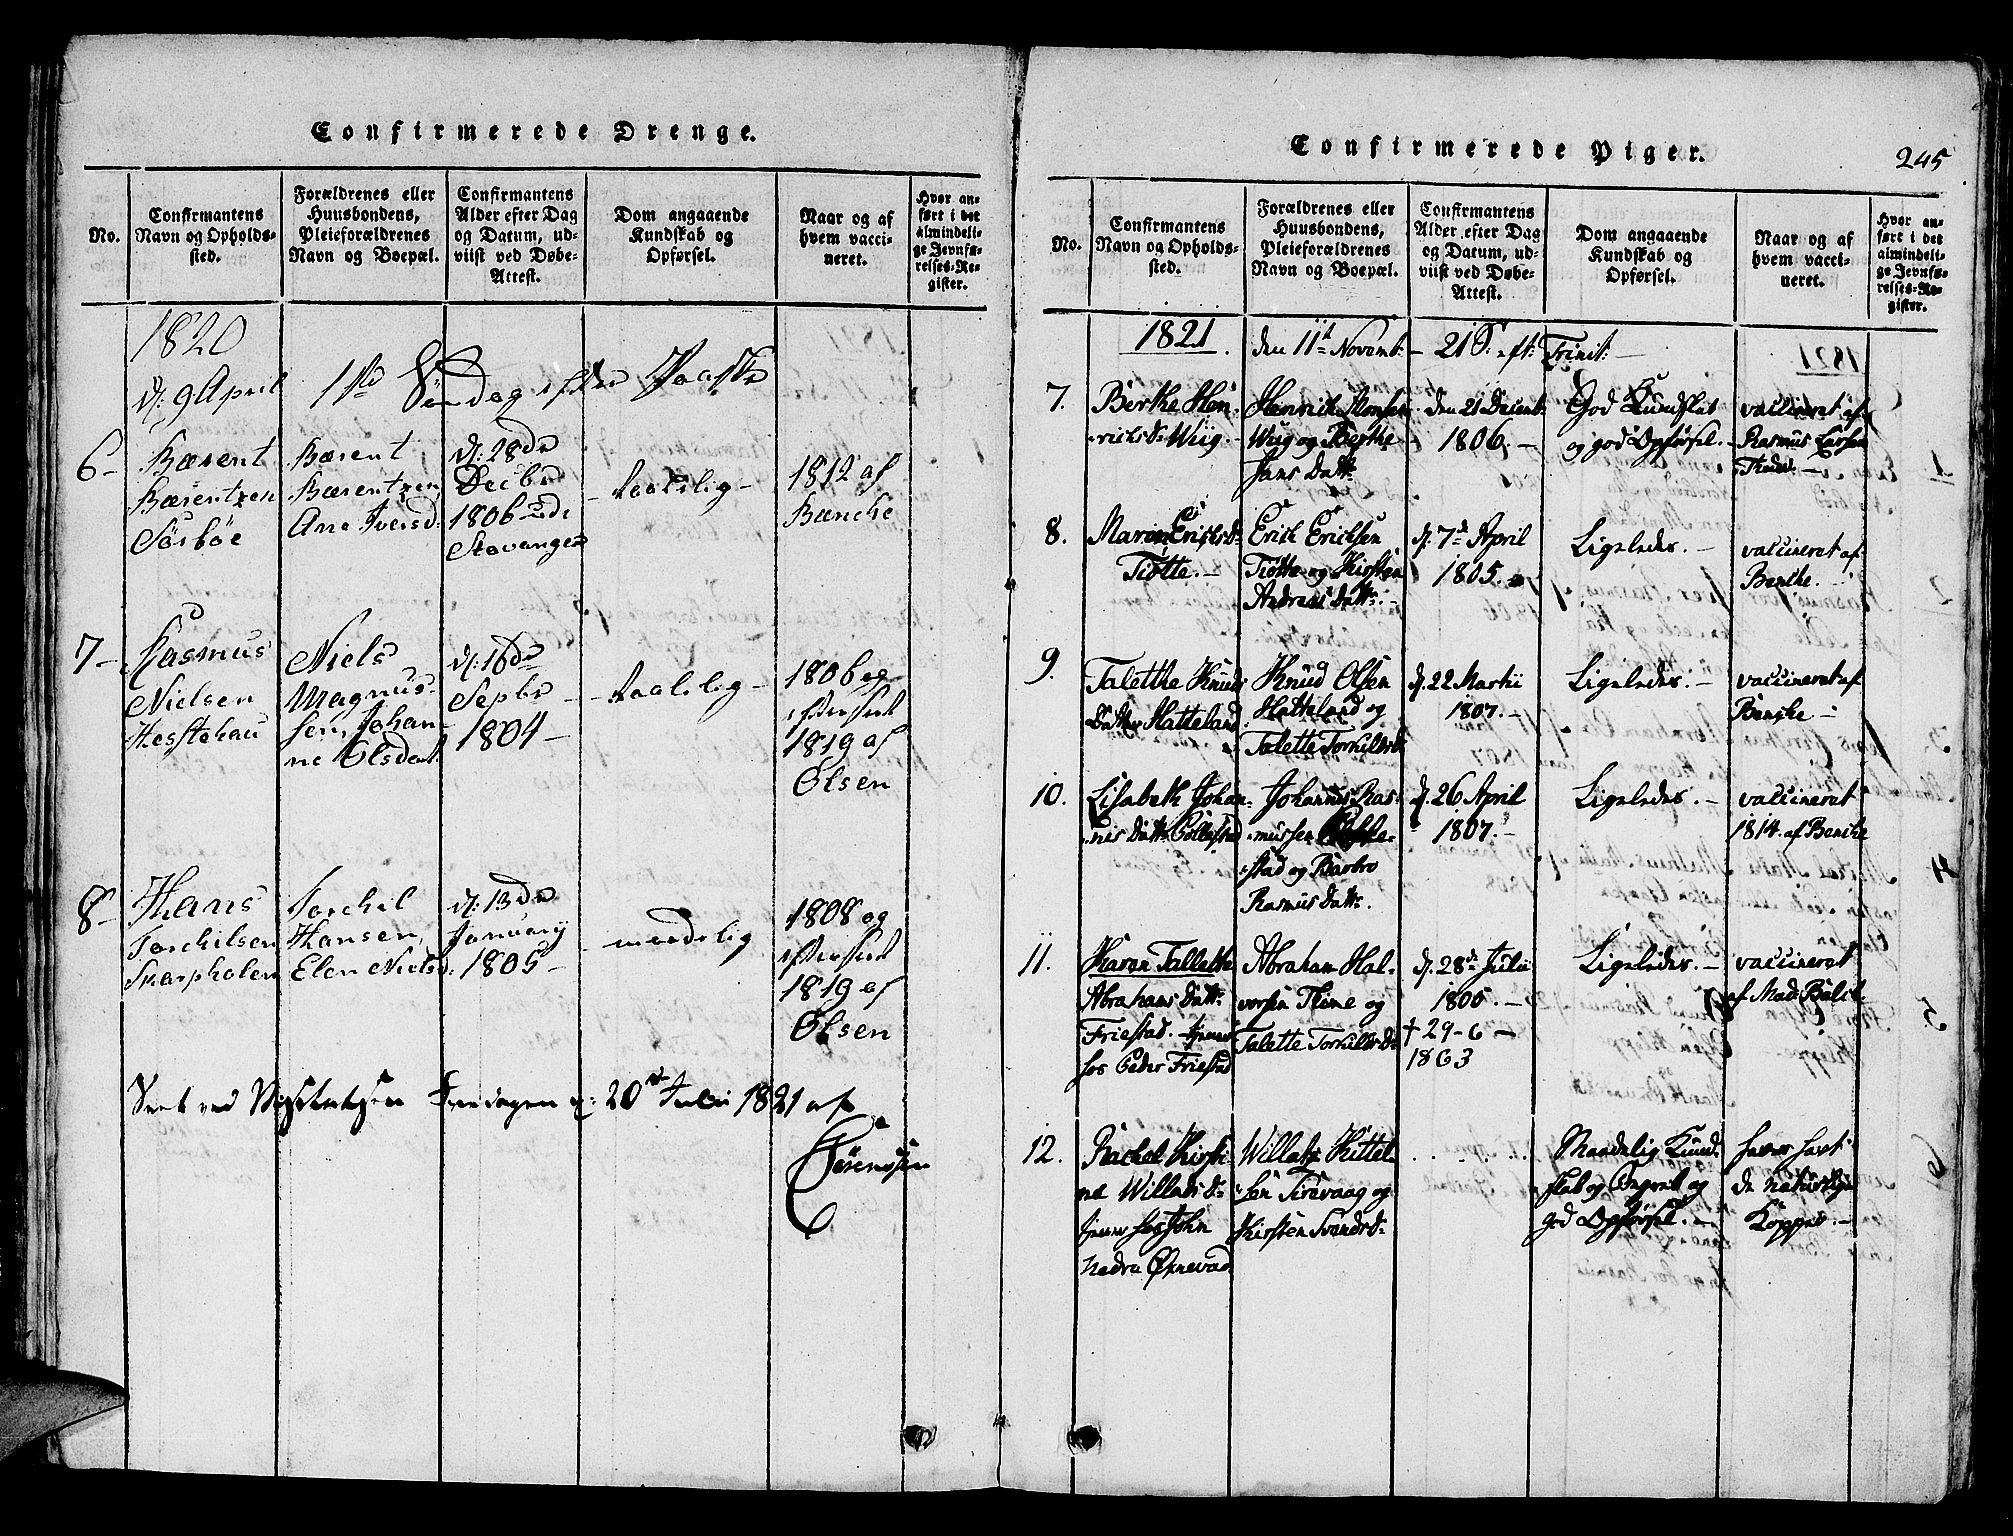 Confirmerede Drenge.
No.
Confirmantens
Navn og Opholds-
sted.
Forældrenes eller
Huusbondens,
Pleieforældrenes
Navn og Boepæl.
Confirmantens
Alder efter Dag
og Datum, ud-
viist ved Døbe-
Attest.
Dom angaaende
Kundskab og
Opførsel.
Naar og af
hvem vacci-
neret.
Hvor an-
ført i det
almindeli-
ge Jevnfø-
relses-Re-
gister.
1820
d: 9 April 1ste Søndag efter Paaske
6-
Bærent
Bærentzen
Sörböe
Bærent
Bærentzen
Ane Iversd:
d: 28de
Decbr
1806
Stavanger
- taalelig -
1812 af
Bencke
7-
Rasmus
Nielsen
Niels
Magnus-
sen, Johan-
ne Olsdat:
d: 16de
Septbr
1804 -
- taalelig -
1806 og
efterseet
1819 af
Olsen
8-
Hans
Torchilsen
Torchel
Hansen,
Elen Nielsd:
d: 13de
January
1805 -
- maadelig
1808 og
efterseet
1819 af
Olsen
Seet ved Visitatsen Fredagen d: 20de Julii 1821 af
Sörenssen
Confirmerede Piger.
245
No.
Confirmantens
Navn og Opholds-
sted.
Forældrenes eller
Huusbondens,
Pleieforældrenes
Navn og Boepæl.
Confirmantens
Alder efter Dag
og Datum, ud-
viist ved Døbe-
Attest.
Dom angaaende
Kundskab og
Opførsel.
Naar og af
hvem vacci-
neret.
Hvor an-
ført i det
almindeli-
ge Jevnfø-
relses-Re-
gister.
1821. den 11te Novemb: - 21 S. eft: Trinit: -
7.
Berthe Hen-
richsd: Wiig. -
Henrich Monsen
Wiig og Berthe
Hans Datt:
den 21 Decemb:
1806. -
God Kundskab
og god Opförsel. -
vaccineret af
Rasmus Larsen
8.
Maren Erichsd:
Tiøtte. -
Erich Erichsen
Tiøtte og Kirsten
Andreas Datt: -
d. 7de April
1805. -
Ligeledes. -
vaccineret af
Bencke. -
9.
Talette Knuds
Datter Hatteland
Knud Olsen
Hatteland og
Talette Torkilsd:
d. 22 Martii
1807. -
Ligeledes. -
vaccineret af
Bencke -
10.
Lisabeth Johan-
nis Datt:
Johannes Ras-
mussen
stad og Barbro
Rasmus Datt:.
d. 26 April
1807. -
Ligeledes. -
vaccineret
1814. af Bencke
11.
Karen Tallette
Abrahams Datt:
Friestad. tjener
hos Peder Friestad
Abraham Hal-
vorsen Thime og
Talette Torkilsd:
d. 28de Julii
1805. -
† 29-6 -
1863
Ligeledes. -
vaccineret
af Mad:
12.
Rachel Kirsti-
ne Willadsd:
tjener hos John
Nedre Øxnevad
Willatz Kittel-
sen Tirevaag og
Kirsten Svendsd:
Maadelig Kund-
skab og Begreb og
god Opförsel. -
haver havt
de naturlige
Kopper. -